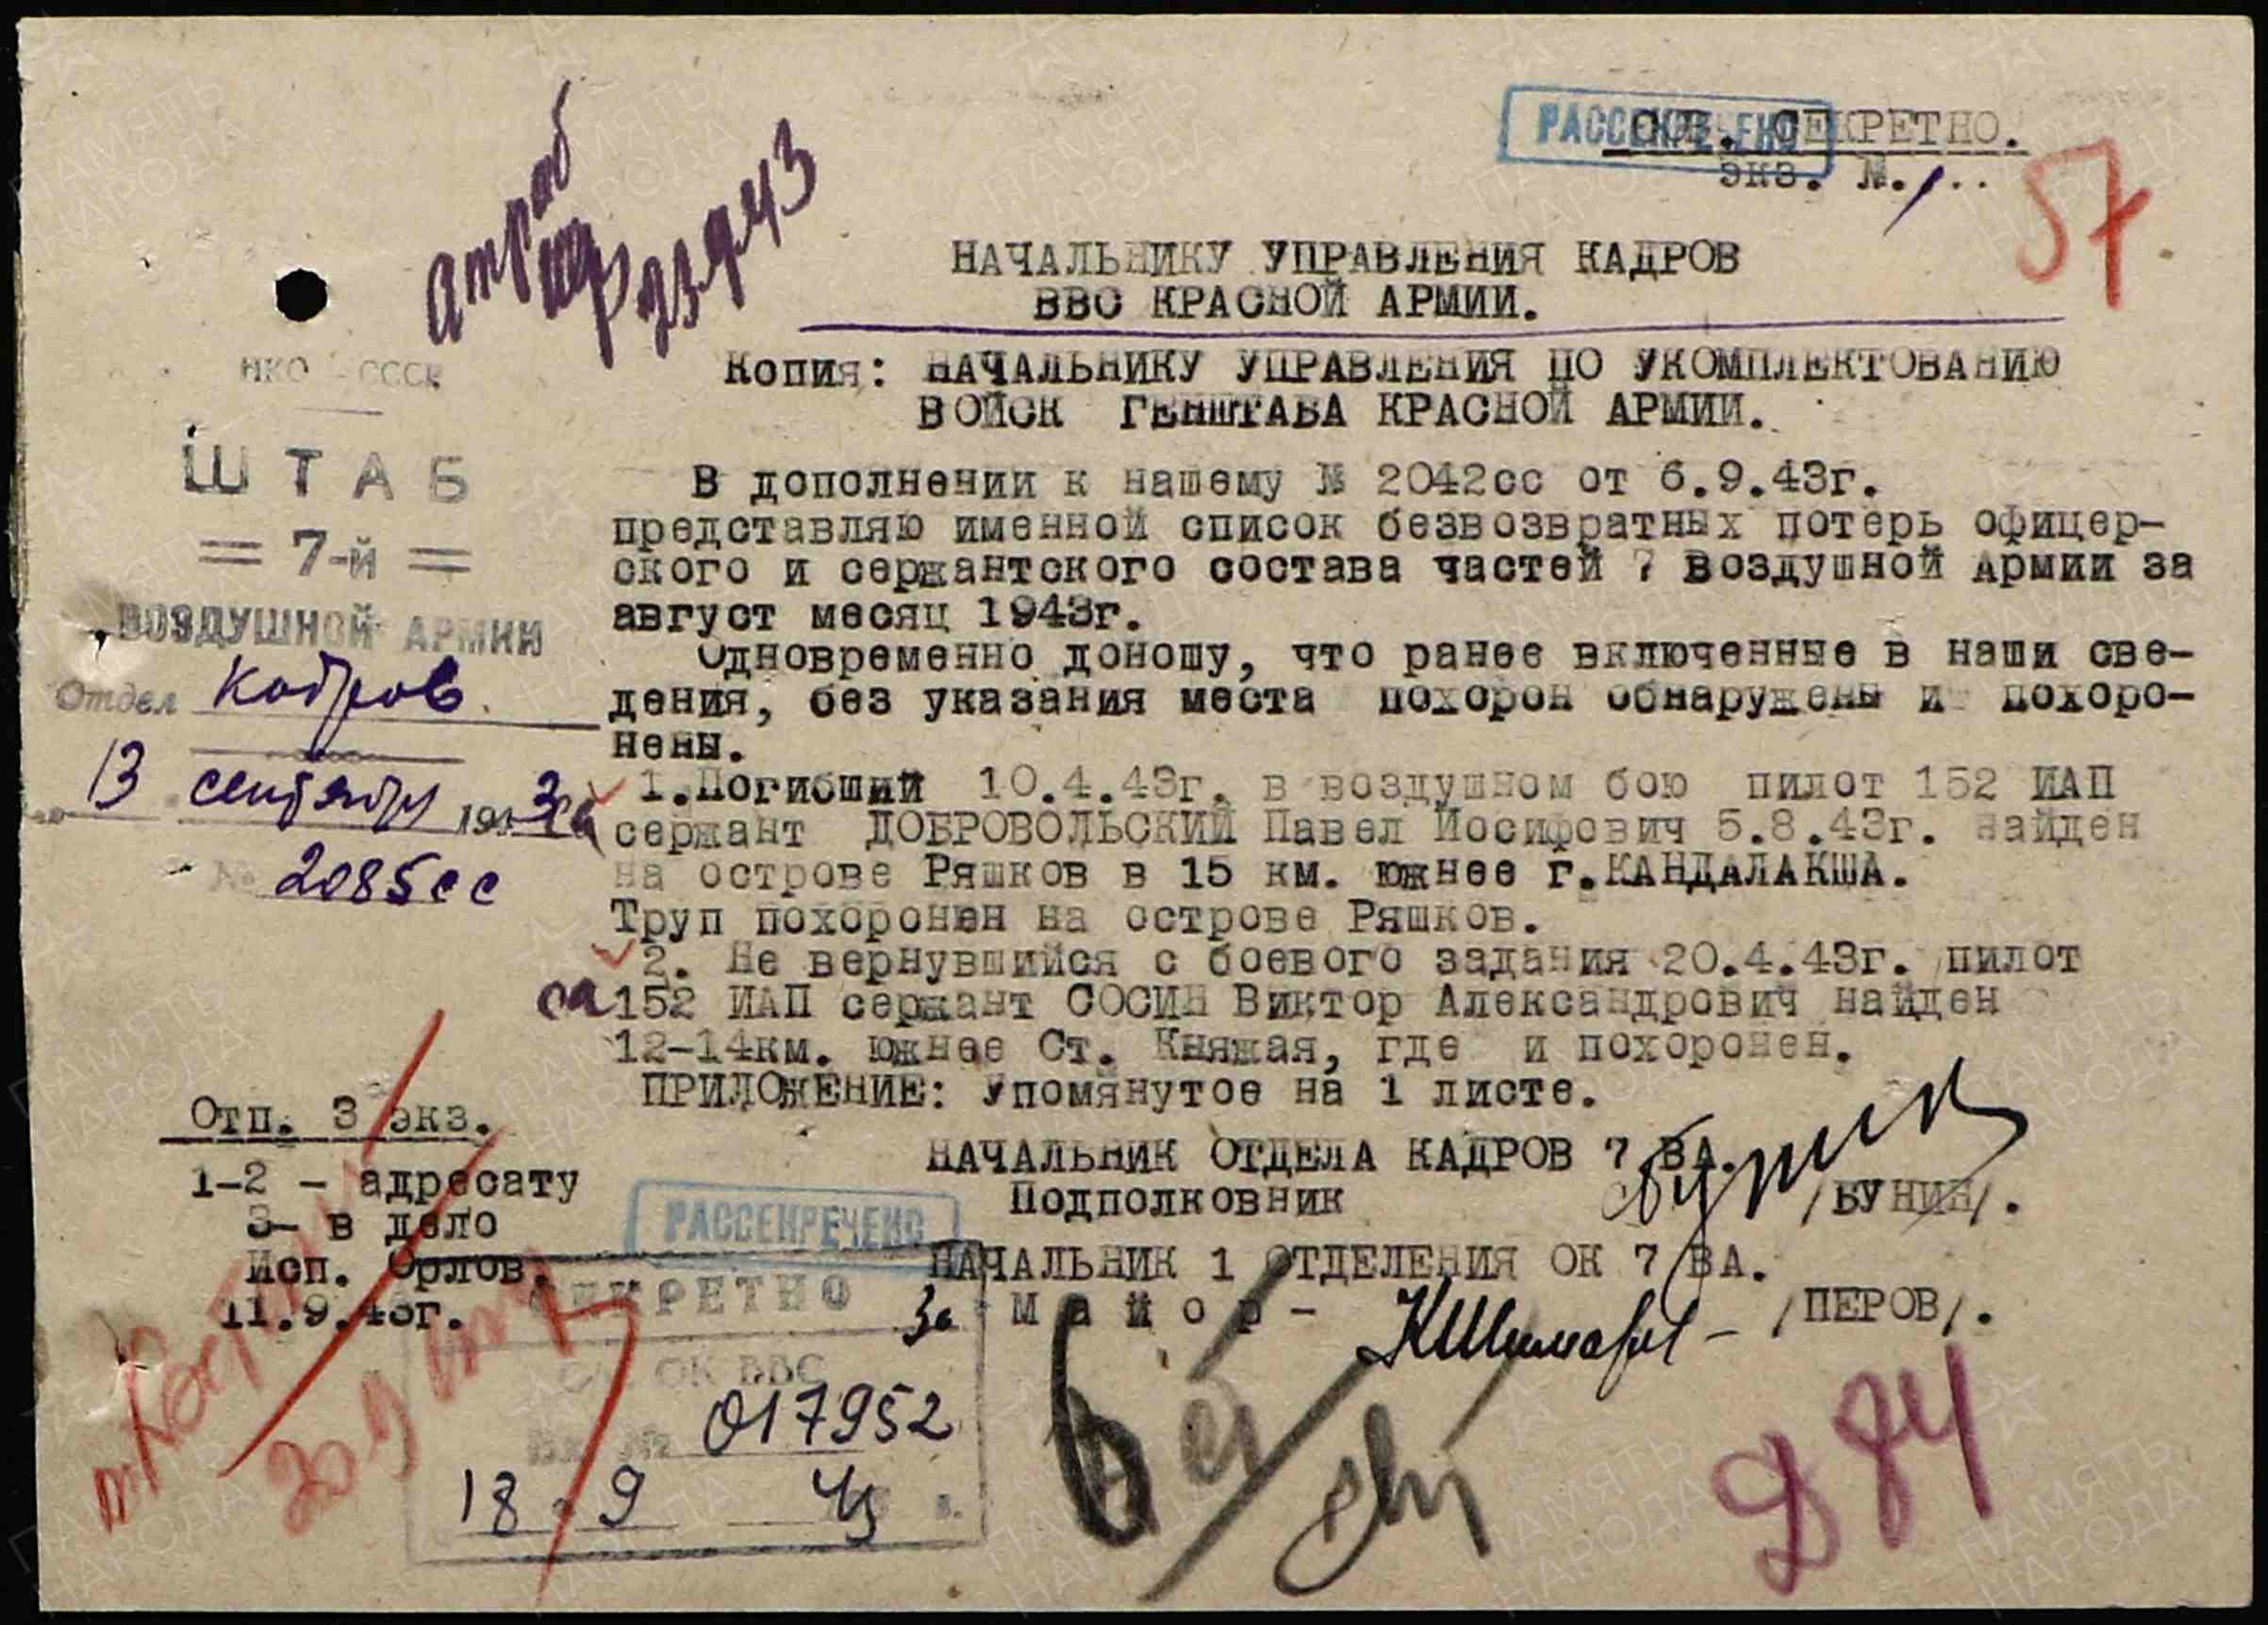 РАССЕКРЕЧЕНО
СОВ. СЕКРЕТНО.
экз. №.1..
57
23.9.43
НАЧАЛЬНИКУ УПРАВЛЕНИЯ КАДРОВ
ВВС КРАСНОЙ АРМИИ.
Копия: НАЧАЛЬНИКУ УПРАВЛЕНИЯ ПО УКОМПЛЕКТОВАНИЮ
ВОЙСК ГЕНШТАБА КРАСНОЙ АРМИИ.
НКО - СССР
ШТАБ
= 7-й =
ВОЗДУШНОЙ АРМИИ
Отдел кадров.
13 сентября 1943г
№ 2085сс
В дополнении к нашему № 2042сс от 6.9.43г.
представляю именной список безвозвратных потерь офицер-
ского и сержантского состава частей 7 Воздушной Армии за
август месяц 1943г.
Одновременно доношу, что ранее включенные в наши све-
дения, без указания места похорон обнаружены и похоро-
нены.
1.Погибший 10.4.43г. в воздушном бою пилот 152 ИАП
сержант ДОБРОВОЛЬСКИЙ Павел Иосифович 5.8.43г. найден
на острове Ряшков в 15 км. южнее г.КАНДАЛАКША.
Труп похоронен на острове Ряшков.
2. Не вернувшийся с боевого задания 20.4.43г. пилот
152 ИАП сержант СОСИН Виктор Александрович найден
12-14км. южнее Ст. Княжая, где и похоронен.
ПРИЛОЖЕНИЕ: Упомянутое на 1 листе.
НАЧАЛЬНИК ОТДЕЛА КАДРОВ 7 ВА.
Подполковник /БУНИН/.
НАЧАЛЬНИК 1 ОТДЕЛЕНИЯ ОК 7 ВА.
За Майор - /ПЕРОВ/.
Отп. 3 экз.
1-2 - адресату
3- в дело
Исп. Орлов.
11.9.43г.
РАССЕКРЕЧЕНО
СЕКРЕТНО
ОК ВВС
Вх. № 017952
18 9 43 г.